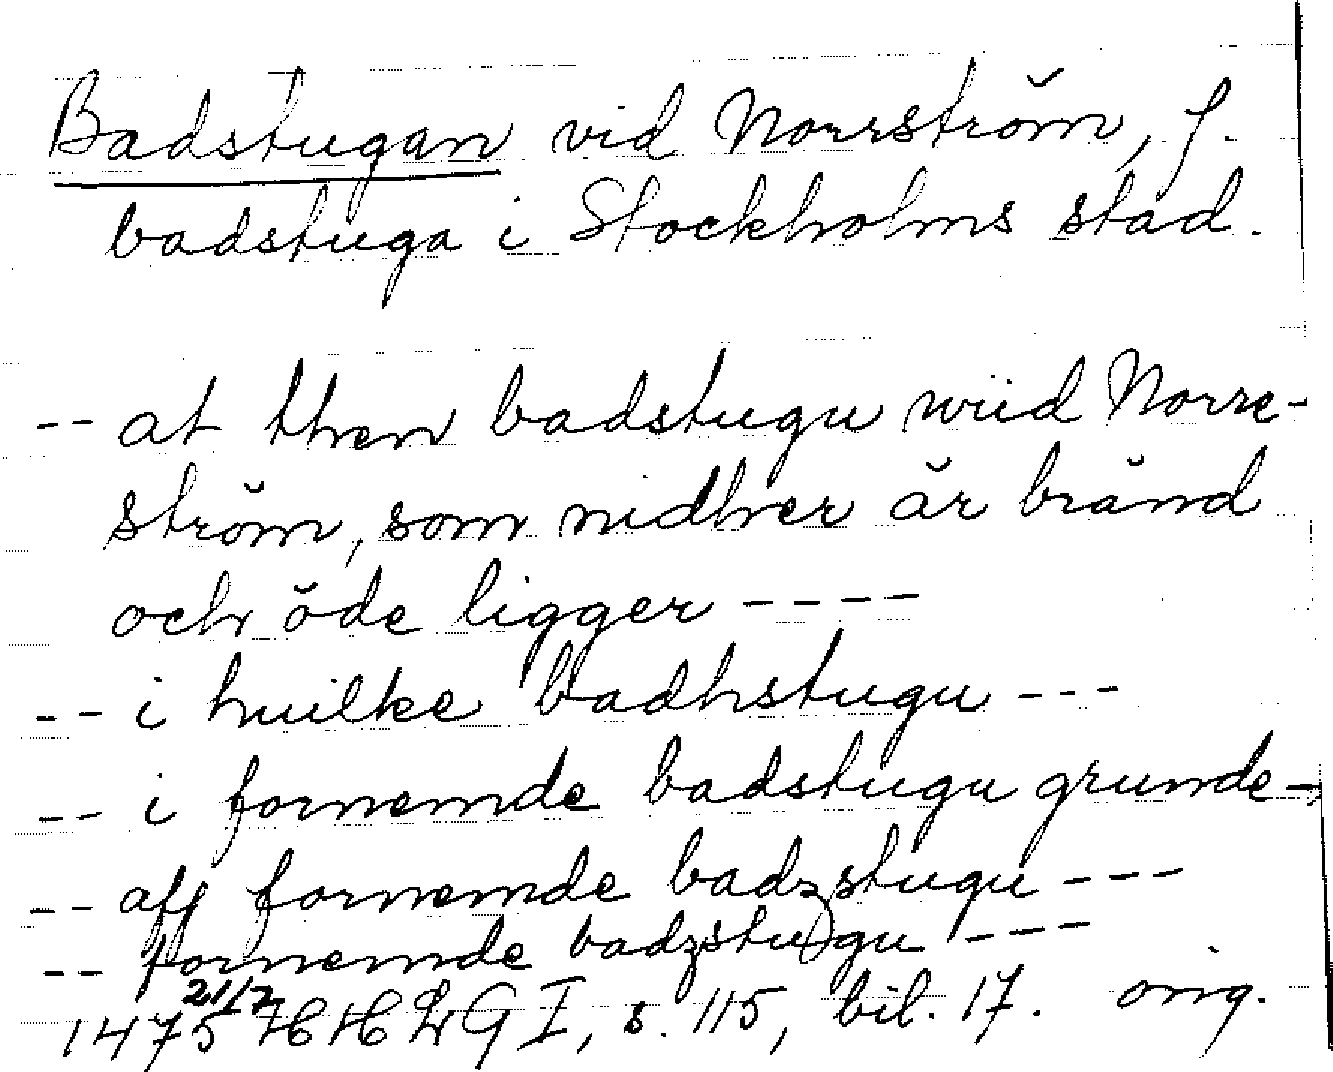 Badstugan vid Norrström, f.
badstuga i Stockholms stad.
-- at then badstugu wiid Norre-
ström, som nidher är bränd
och öde ligger ----
-- i huilke badhstugu ---
-- i fornemde badstugu grunde-
-- aff fornemde badzstugu ---
-- fornemde badzstugu ---
1475 21/2 HHLG I, s. 115, bil. 17. orig.